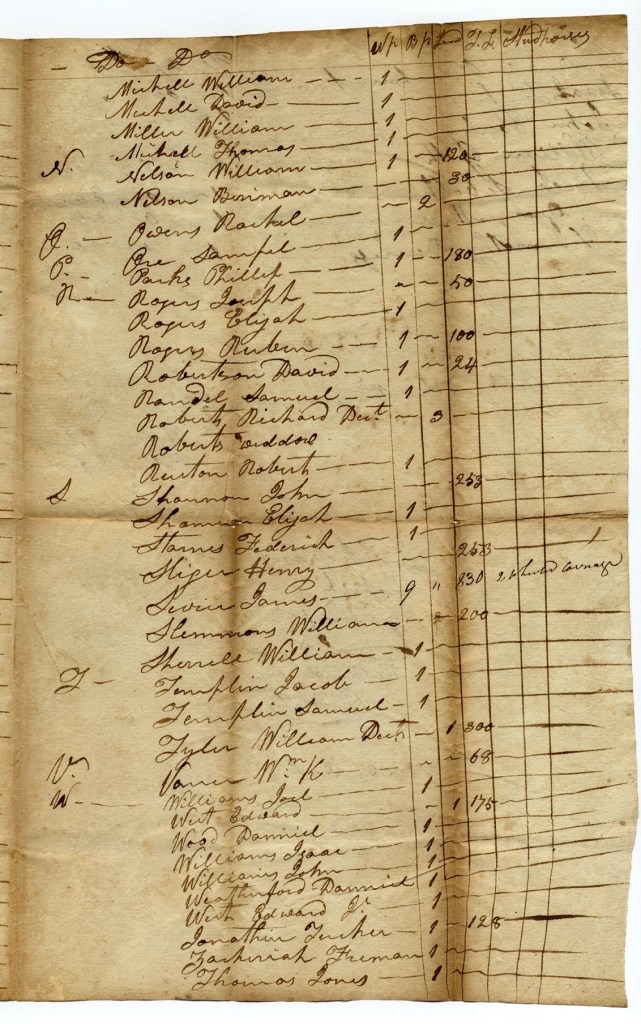 — Do — Do Wp Bp Land T. L Studhorses
Michell William — — — 1
Michell David — 1
Miller William 1
Michell Thomas — 1
N. Nelson William — 1 — 120
Nelson — 30
O. — Owens Rachel — — 2
Ore 1
P. — Parks Phillip — 1 — 180
R — Rogers Joseph — 50
Rogers Elijah — 1
Rogers Reuben — 1 — 100
Robertson David — 1 — 24
Randel Samuel — — 1
Roberts Richard Dect. — 3
Roberts
Robert — 1
S Shannon John — 253
Shannon Elijah — 1
Starnes Federick 1
Henry — 253
Sevier James — 9 " 830 2
Slemmons William — 200
Sherrell William — 1
T — Templin Jacob — 1
Templin Samuel — 1
Tyler William Dect — 1 300
V. Wm. K — 68
W — Williams Joel 1
West Edward — 1 175
Wood Danniel — 1
Williams Isaac — 1
Williams John — 1
Weatherford Danniel 1
West Edward Jr 1
Jonathin Tucker — 1 — 128
Zackeriah Freman 1
Thomas Jones — 1